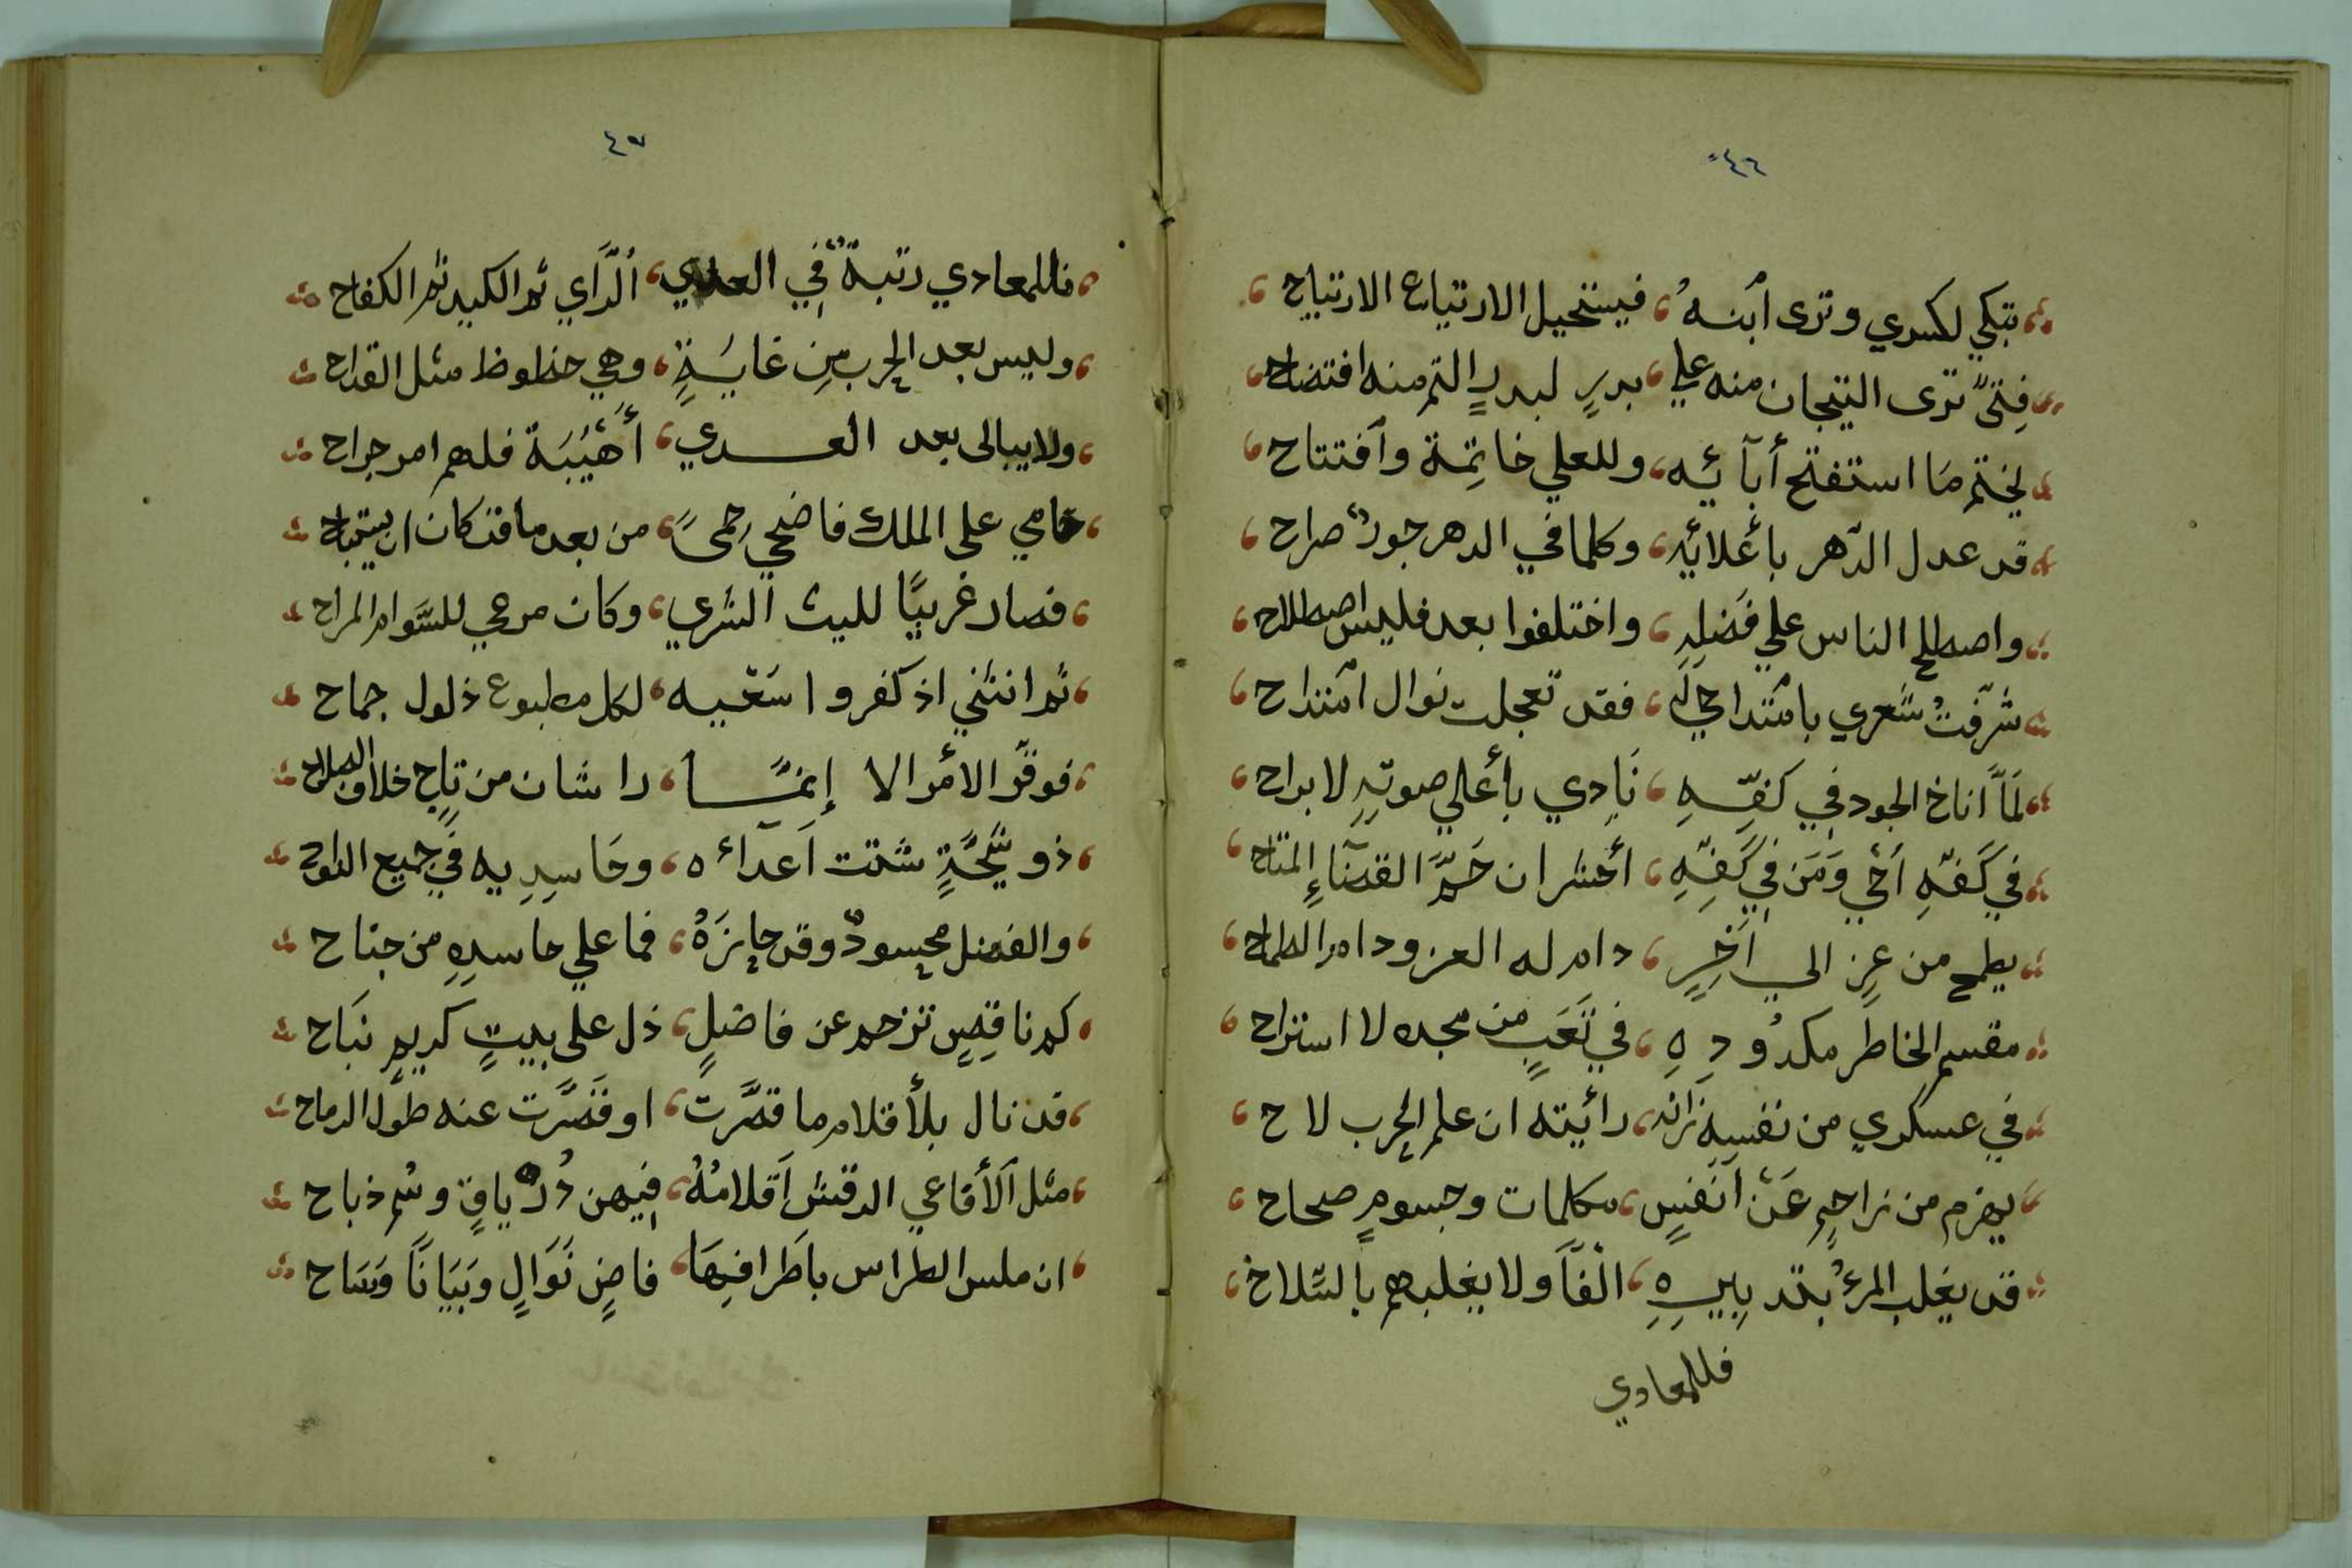 ٤٦
تبكي لكسري وترى أبنهُ، فيستحيل الارتياع الارتياح،
فِتىً ترى التيجان منه علي، بدرٍ لبدرِ التم منه افتضاح،
يختم مَا استفتح أبآئيه، وللعلي خاتِمة وأفتتاح،
قد عدل الدّهر بأعلائهِ، وكلما في الدهر جورٌ صراح،
واصطلح الناس علي فَضلِهِ، واختلفوا بعد فليس اصطلاح،
شرّفتُ شعري بامتداحي لَهِ، فقد تعجلت نوال أمتداح،
لَمَّا أناخ الجود في كفّـــهِ، نَادِي بأعلي صوتِهِ لا براح،
في كَفّهِ أخي وَمَن في كَفِّهِ، أخشر ان حَمَّ القضآءِ المتاح،
يطمح من عِزٍ الي آخَرٍ، دام له العز ودام الطماح،
مقسم الخاطر مكدُودِهِ، في تَعَبٍ من مجده لا استراح،
في عسكري من نفسه زانه، رائيته ان علم الحرب لاح،
يهزم من زاحم عَنْ أنفسٍ، مكلمات وجسومٍ صحاح،
قد يغلب المرءُ بتدبيرِهِ، ألْفاً ولا يغلبهم بالسّلاح،
فللمعادي
٤٧
فللمعادي رتبةٌ في العدي، ألرَّاي ثم الكيد ثم الكفاح
وليس بعد الحرب مِن غايَةٍ، وهي حظوظ مثل القداح
ولا يبالى بعد العـــدي، أَهَيْبَة فلهم ام جراح
حامي على الملك فاضحي حِمىً، من بعد ما قد كان ان يستباح
فصار غريبًا لليث الشري، وكان مرعي للسَّوام المراح
ثم انثني اذ كفروا سَعْيه، لكل مطبوع ذلول جماح
فوقّر الأمر الا إنمّــا، داشان من تاج خلاف الصلاح
ذو شِيْحَةٍ شتت أعدآئه، وحَاسِدِيه في جميع النواح
والفضل محسودٌ وقد حايزَهُ، فما علي حاسدِهِ من جناح
كم ناقِصٍ تزحم عن فاضلٍ، ذل على بيتٍ كريمٍ نَبَاح
قد نال بلأقلام ما قصَّرت، او قَصَّرت عنه طوَل الرماح
مثل ألأفاعي الرقش أقلامُهُ، فيهن دُرْياقٍ وسُم ذباح
ان ملس الطراس باَطرافِهَا، فاضِ نَوَالٍ وبَيَاناً وَسَاح